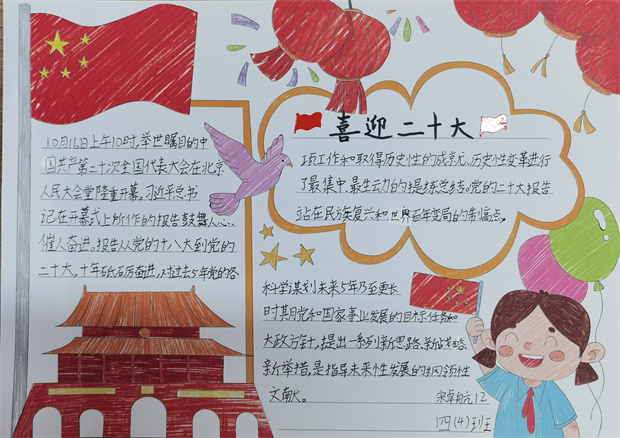 喜迎二十大
10月16日上午10时,举世瞩目的中
国共产党第二十次全国代表大会在北京
人民大会堂隆重开幕,习近平总书
记在开幕式上所作的报告鼓舞人心、
催人奋进。报告从党的十八大到党的
二十大,十年砥砺奋进,对过去5年党的各
项工作和取得历史性的成就、历史性变革进行
了最集中、最生动的提练总结。党的二十大报告
站在民族复兴和世界百年变局的制高点,
科学谋划未来5年乃至更长
时其月党和国家事业发展的目标任务和
大政方针,提出一系列新思路、新战略、
新举措,是指导未来性发展的纲领性
文献。
宋卓 12
四(4)班